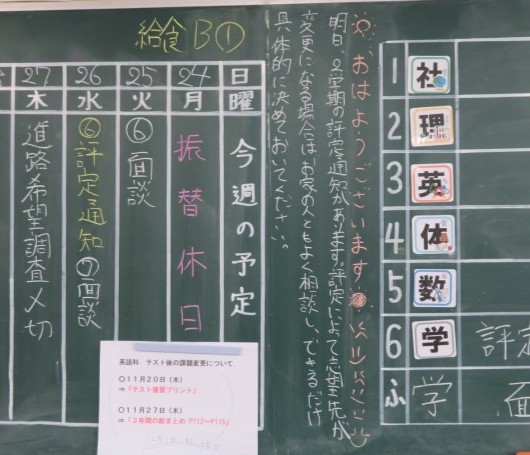 給食B①
日 24 25 26 27
曜 月 火 水 木
今週の予定
振替休日
⑥面談
⑥評定通知 ⑦面談
進路希望調査〆切
☼おはようございます
明日、2学期の評定通知があります。評定によって志望先が
変更になる場合は、お家の人ともよく相談し、できるだけ
具体的に決めておいてください。
1 社
2 理
3 英
4 体
5 数
6 学 評定
ふ 学 面
英語科 テスト後の課題変更について
〇11月20日（木）
⇒『テスト復習プリント』
〇11月27日（木）
⇒『3年間の総まとめ P112～P115』